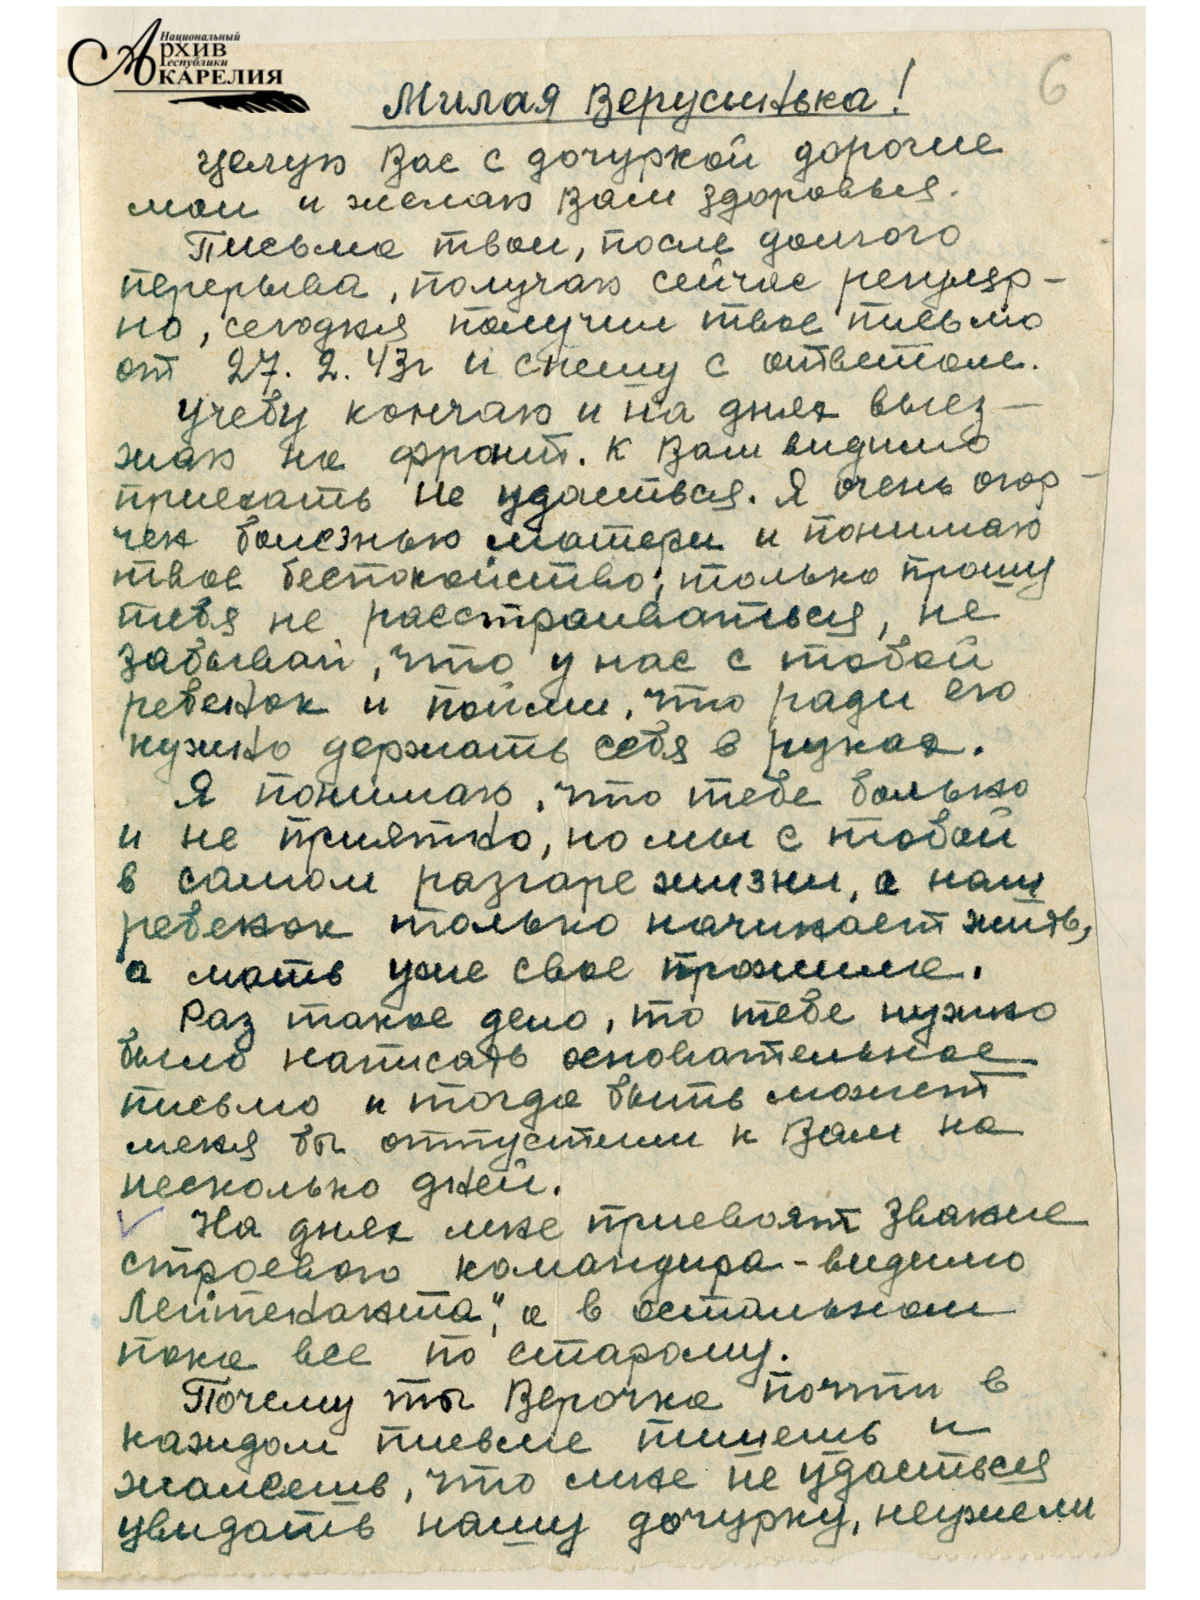 Национальный
Архив
Республики
Карелия
6
Милая Верусинька!
Целую Вас с дочуркой дорогие
мои и желаю Вам здоровья.
Письма твои, после долгого
перерыва, получаю сейчас регуляр-
но, сегодня получил твое письмо
от 27. 2. 43г и спешу с ответом.
Учебу кончаю и на днях выез-
жаю на фронт. К Вам видимо
приехать не удасться. Я очень огор-
чен болезнью матери и понимаю
твое беспокойство, только прошу
тебя не расстраиваться, не
забывай, что у нас с тобой
ребенок и пойми, что ради его
нужно держать себя в руках.
Я понимаю, что тебе больно
и не приятно, но мы с тобой
в самом разгаре жизни, а наш
ребенок только начинает жить,
а мать уже свое прожила.
Раз такое дело, то тебе нужно
было написать основательное
письмо и тогда быть может
меня бы отпустили к Вам на
несколько дней.
На днях мне присвоят звание
строевого командира - видимо
Лейтенанта", а в остальном
пока все по старому.
Почему ты Верочка почти в
каждом письме пишешь и
жалеешь, что мне не удасться
увидать нашу дочурку, неужели